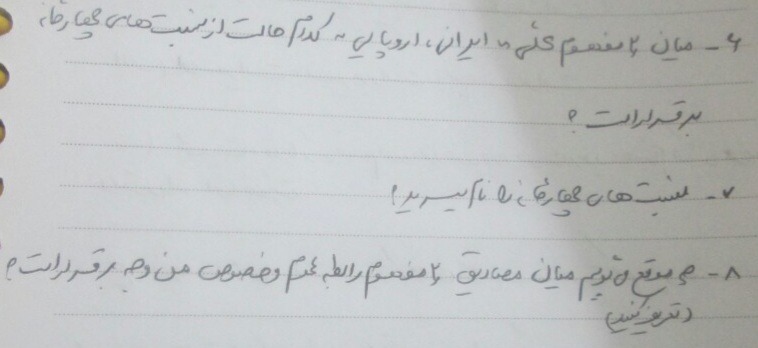 ۶- میان ۲ مفهوم کلی « ایرانی، اروپایی » کدام حالت از نسبت های چهارگانه
برقرار است ؟
۷- نسبت های چهارگانه را نام ببرید ؟
۸- چه موقع می گوییم میان مصادیق ۲ مفهوم رابطه عموم و خصوص من وجه برقرار است ؟
(تعریف کنید)